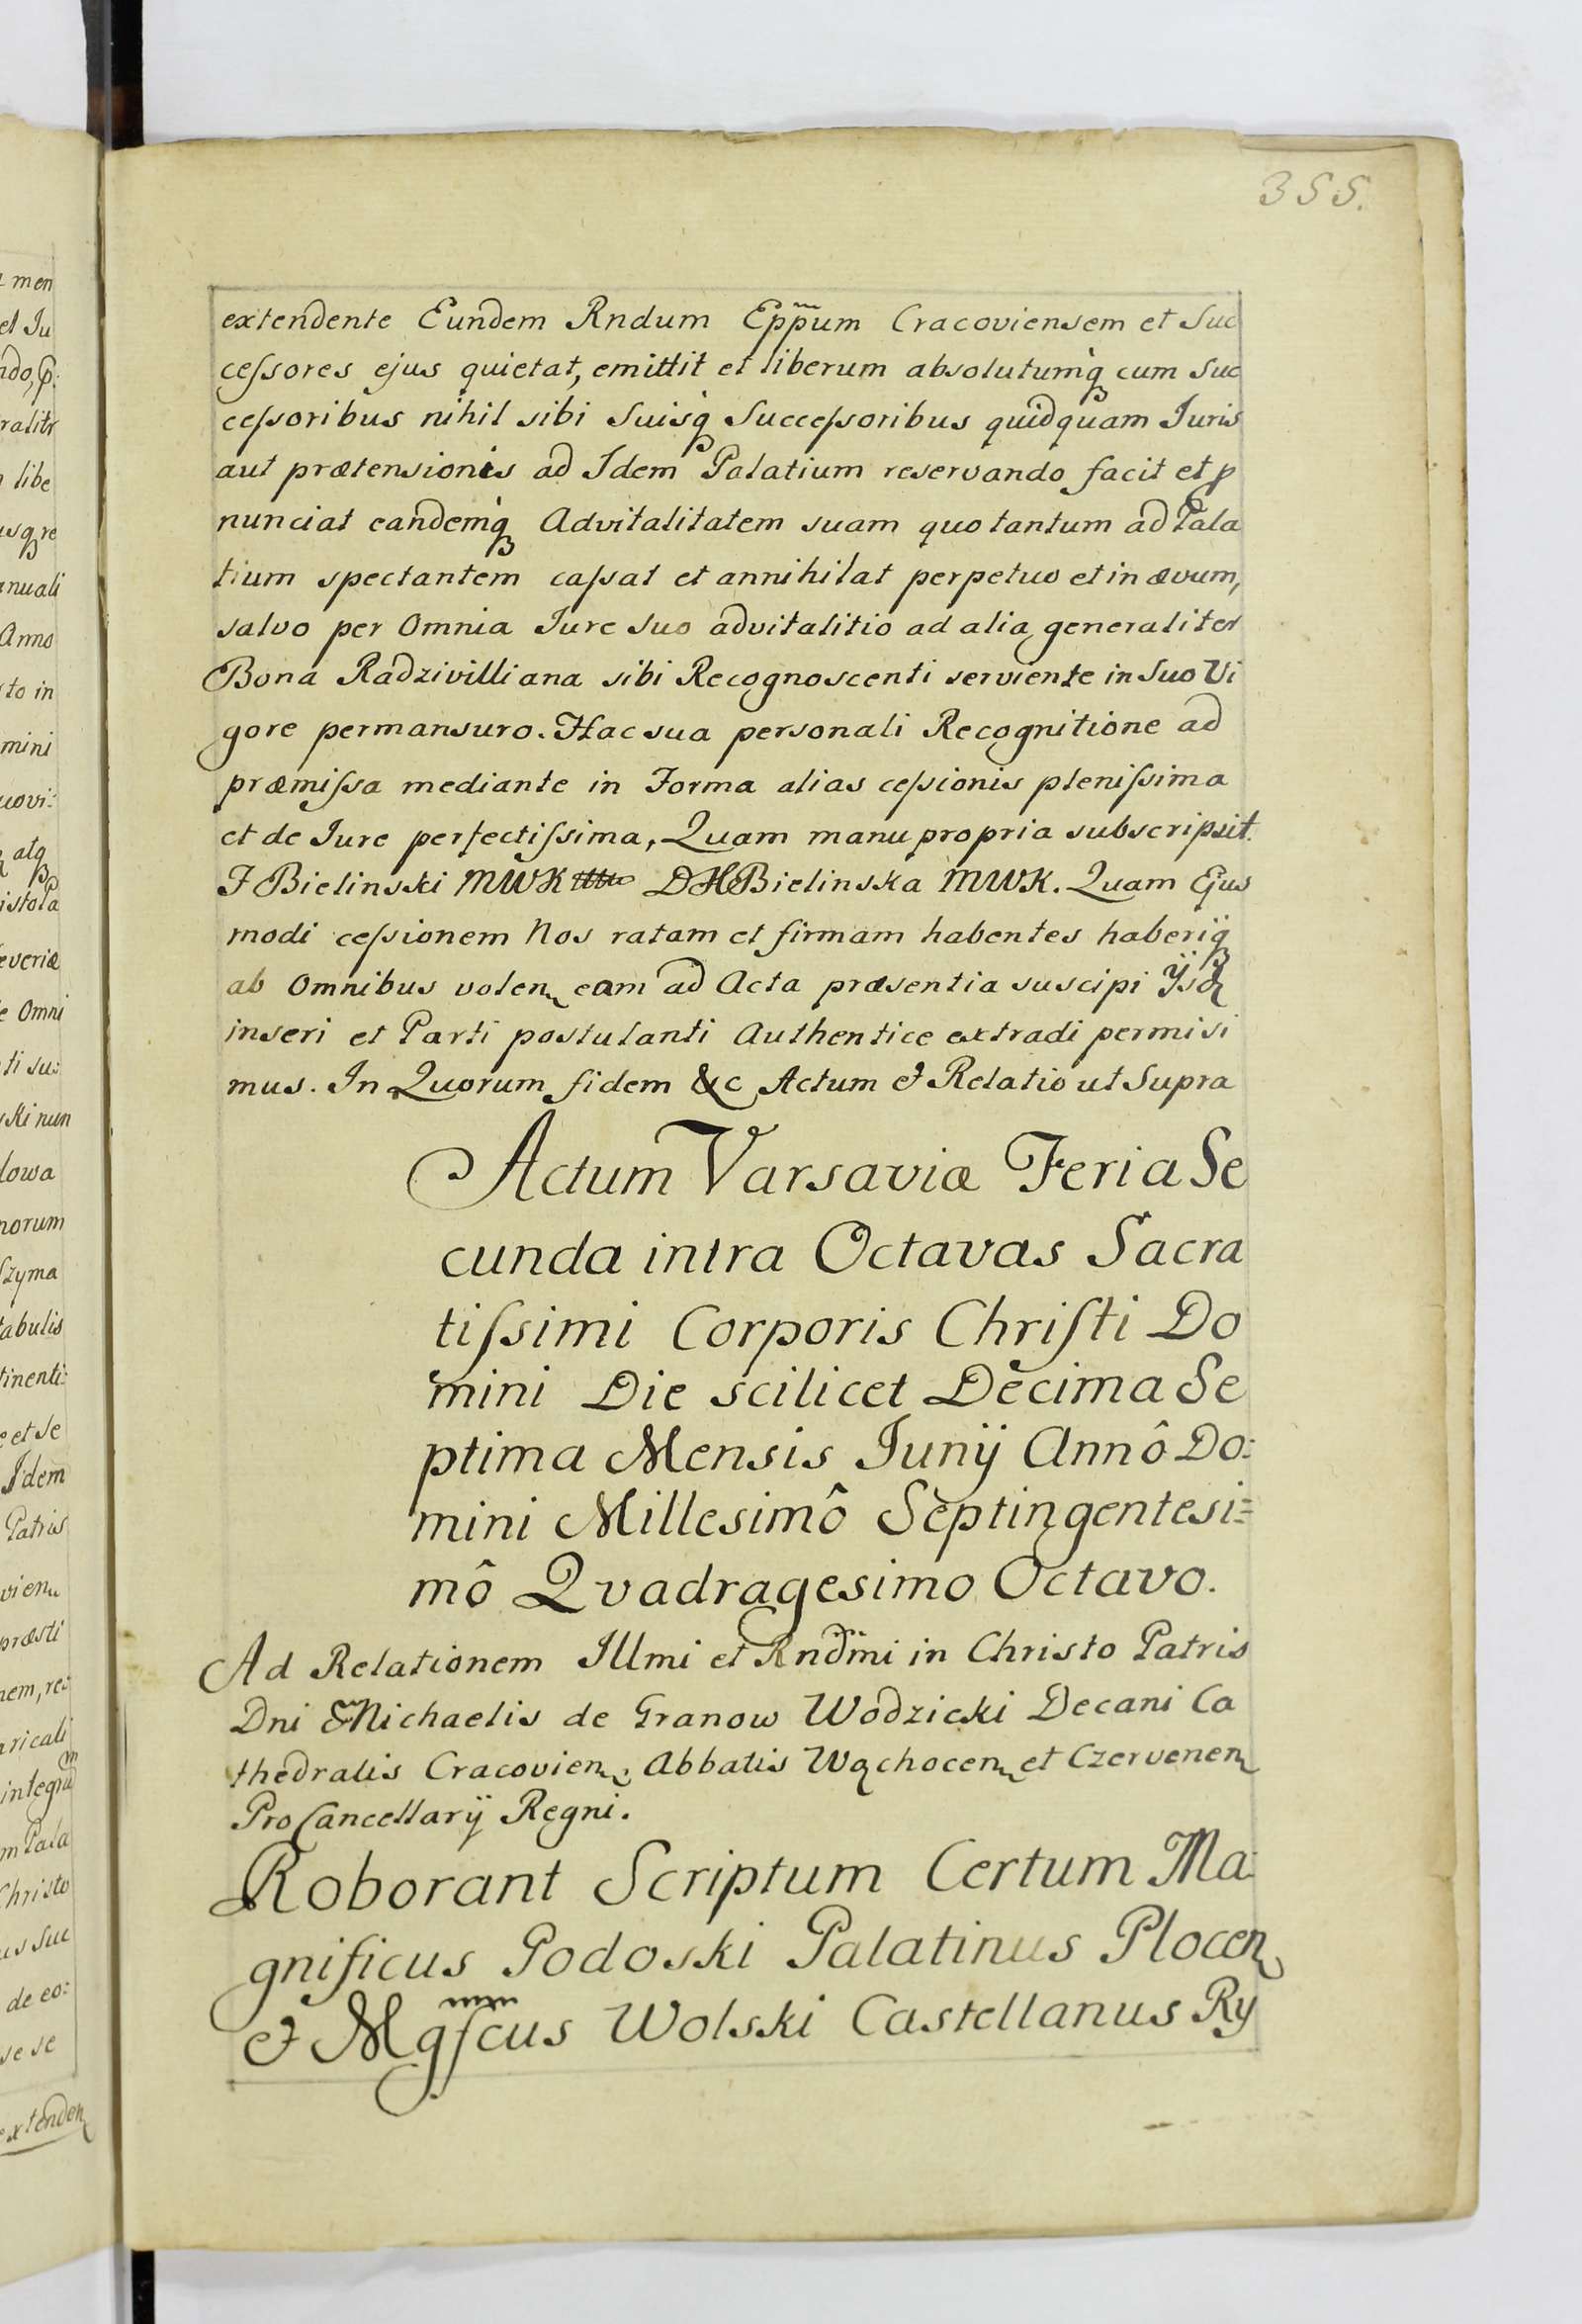 355.
extendente Eundem Rndum Eppum Cracoviensem et Suc
cessores ejus quietat, emittit et liberum absolutumq cum Suc
cessoribus nihil sibi Suisq Successoribus quidquam Iuris
aut prætensionis ad Idem Palatium reservando facit et p
nunciat eandemq Advitalitatem suam quo tantum ad Pala
tium spectantem cassat et annihilat perpetuo et in ævum,
salvo per Omnia Iure Suo advitalitio ad alia generaliter
Bona Radzivilliana sibi Recognoscenti serviente in Suo Vi
gore permansuro. Hac sua personali Recognitione ad
præmissa mediante in Forma alias cessionis plenissima
et de Iure perfectissima, Quam manu propria subscripsit.
F Bielinski MWK DH Bielinska MWK. Quam Ejus
modi cessionem Nos ratam et firmam habentes haberiq
ab Omnibus volen eam ad Acta præsentia suscipi ÿsq
inseri et Parti postulanti Authentice extradi permisi
mus. In Quorum fidem &c Actum & Relatio ut Supra
Actum Varsaviæ Feria Se
cunda intra Octavas Sacra
tissimi Corporis Christi Do
mini Die scilicet Decima Se
ptima Mensis Iunÿ Annô Do:
mini Millesimô Septingentesi=
mô Qvadragesimo Octavo.
Ad Relationem Illmi et Rndmi in Christo Patris
Dni Michaelis de Granow Wodzicki Decani Ca
thedralis Cracovien, Abbatis Wąchocen et Czervenen
ProCancellarÿ Regni.
Roborant Scriptum Certum Ma:
gnificus Podoski Palatinus Plocen
& Mgfcus Wolski Castellanus Ry